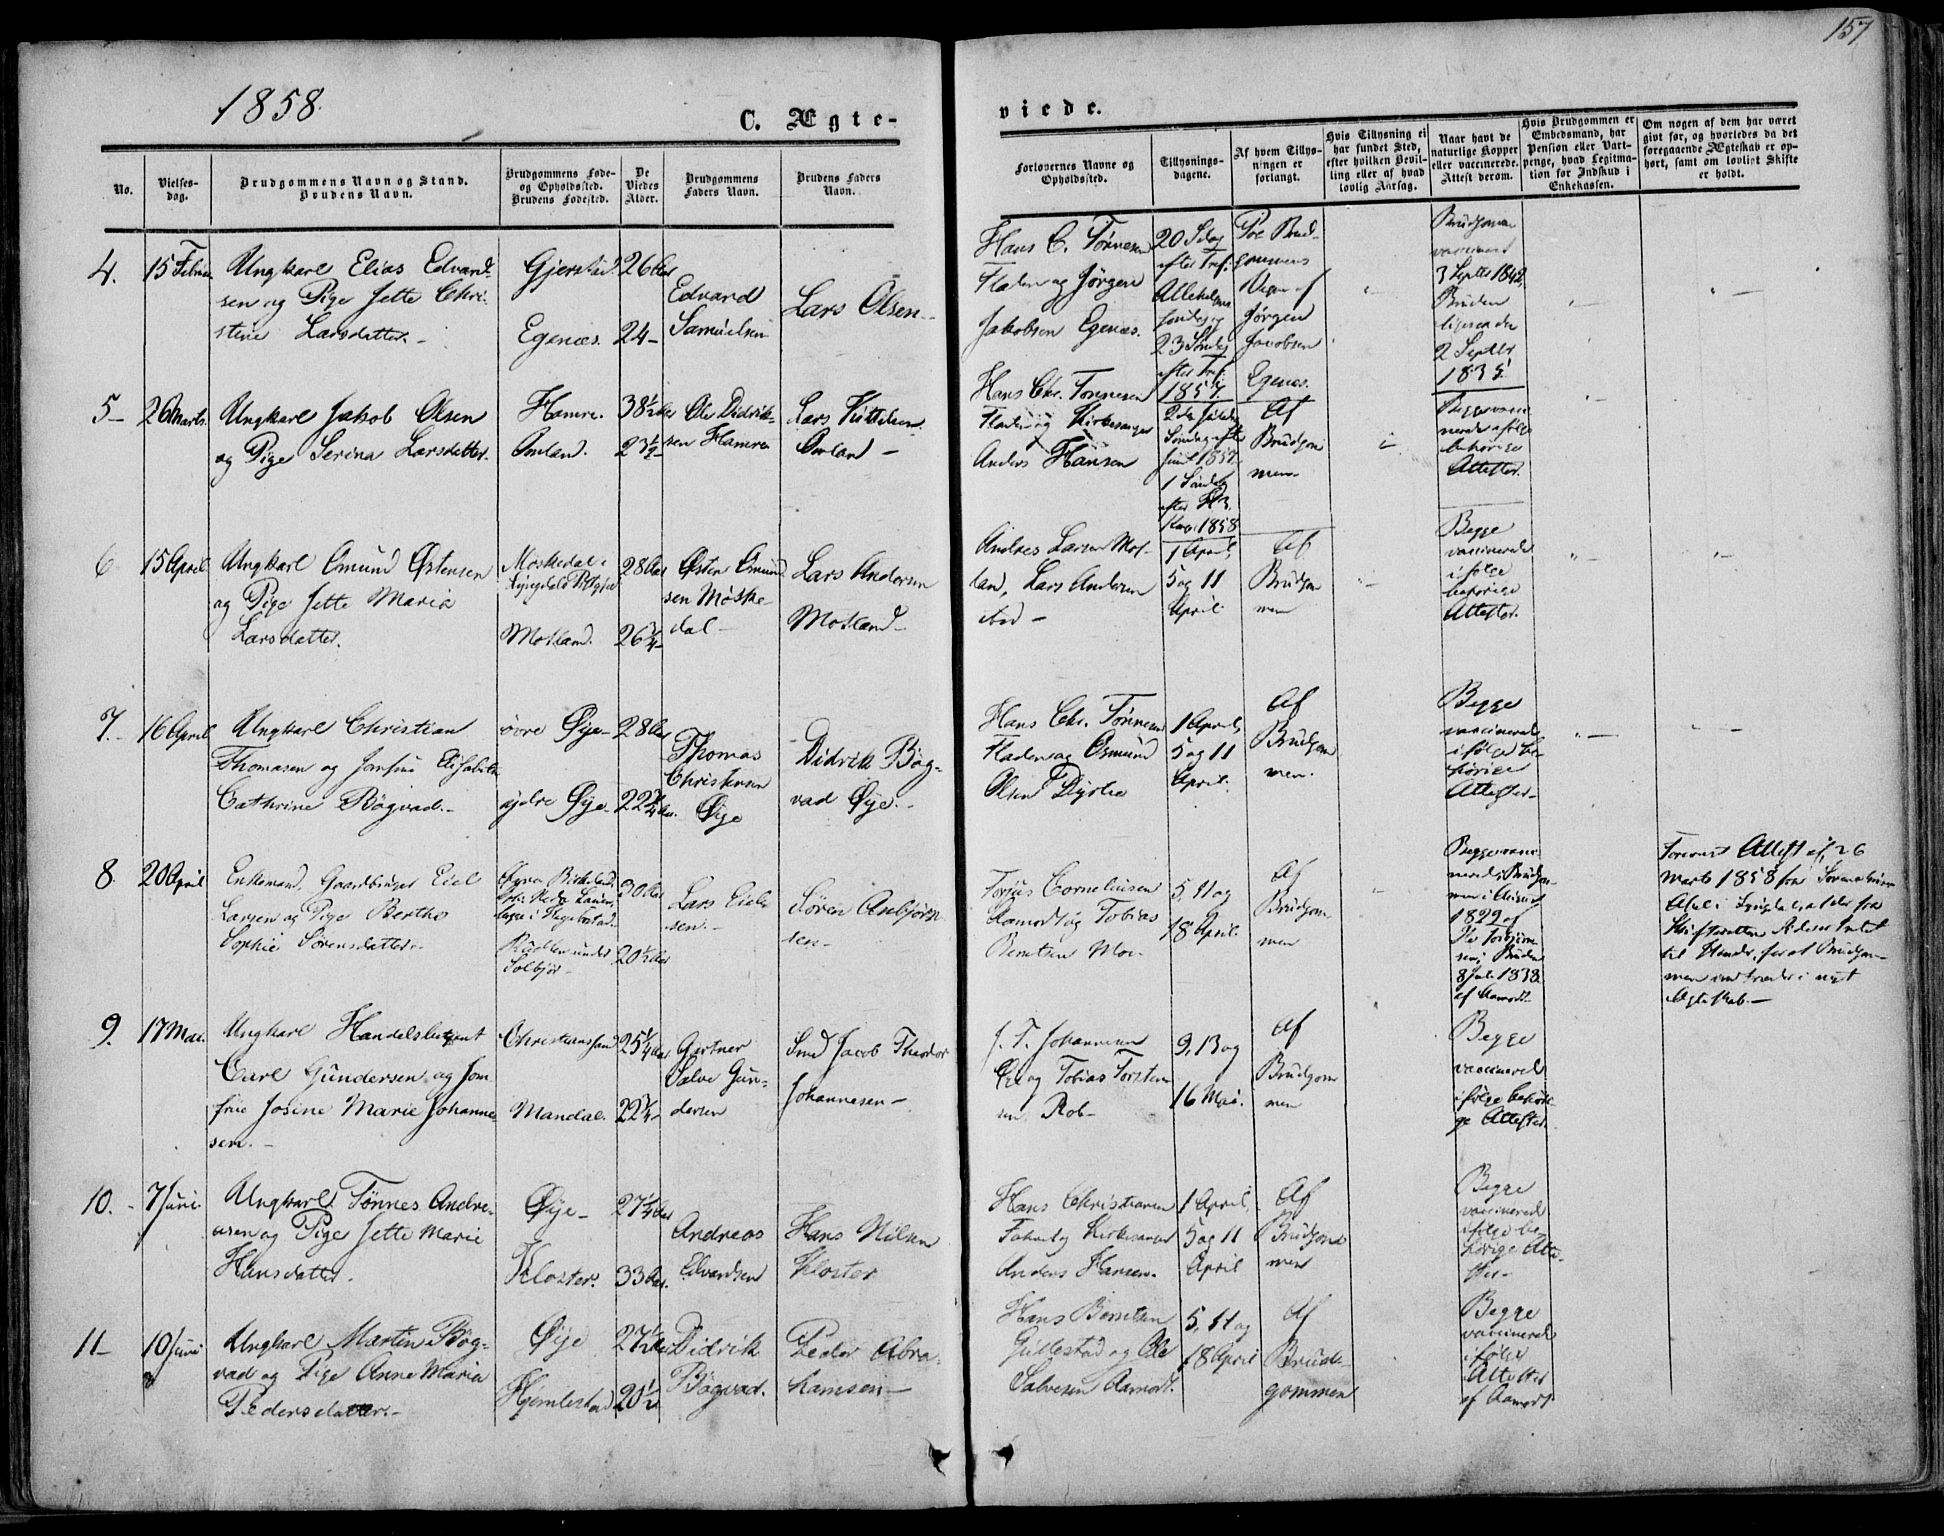 157
1858.
C. Ægte-
viede.
No.
Vielses-
dag.
Brudgommens Navn og Stand.
Brudens Navn.
Brudgommens Føde-
og Opholdssted.
Brudens Fødested.
De
Viedes
Alder.
Brudgommens
Faders Navn.
Brudens Faders
Navn.
Forlovernes Navne og
Opholdssted.
Tillysnings-
dagene.
Af hvem Tillys-
ningen er
forlangt.
Hvis Tillysning ei
har fundet Sted,
efter hvilken Bevil-
ling eller af hvad
lovlig Aarsag.
Naar havt de
naturlige Kopper
eller vaccinerede.
Attest derom.
Hvis Brudgommen er
Embedsmand, har
Pension eller Vart-
penge, hvad Legitima-
tion for Indskud i
Enkekassen.
Om nogen af dem har været
gift før, og hvorledes da det
foregaaende Ægteskab er op-
hørt, samt om lovligt Skifte
er holdt.
4.
15 Februar
Ungkarl Elias Edvard-
sen og Pige Jette Chri-
stine Larsdatter.
Gjerstad
Egenæs.
26 Aar
24 -
Edvard
Samuelsen
Lars Olsen
Hans C. Tönnesen
Fladen og Jörgen
Jakobsen Egenæs.
20 Sdag
efter Tref:
Allehelgens
søndag og
23 Søndag
efter Tref.
1857.
Paa Brud-
gommens
Vegne af
Jörgen
Jacobsen
Egenæs.
Brudgommen
vaccineret
3 Septbr 1842,
Bruden
ligesaa den
2 Septbr
1835.
5 -
26 Marts
Ungkarl Jakob Olsen
og Pige Serina Larsdatter.
Hamre.
Omland.
38 1/2 Aar
23 1/2
Ole Didrik-
sen Hamre
Lars Kittelsen
Omland -
Hans Chr. Tönnesen
Fladen og Kirkesanger
Anders Hansen
2den Juledag
Söndag efter
Juul 1857,
1 Söndag
efter H. 3
Kong. 1858
Af
Brudgom
men
Begge vacci-
nerede ifølge
behørige
Attester.
6
15 April
Ungkarl Omund Østensen
og Pige Jette Maria
Larsdatter.
Møskedal i
Lyngdals Præstegj.
Mosland.
28 Aar
26 3/4
Østen Omund
sen Møske
dal -
Lars Andersen
Mosland -
Andreas Larsen Mos-
land, Lars Andersen
ibid -
1 April,
5 og 11
April
Af
Brudgom
men
Begge
vaccinerede
ifølge
behørige
Attester.
7.
16 April
Ungkarl Christian
Thomasen og Jomfru Elisabeth
Cathrine Bögvad.
övre Øje -
ydre Øje -
28 Aar
22 3/4 Aar.
Thomas
Christensen
Øje
Didrik Bög-
vad Øje. -
Hans Chr. Tönnesen
Fladen og Osmund
Olsen Dyrlie
1 April,
5 og 11
April.
Af
Brudgom
men.
Begge
vaccinerede
ifølge be
hörige
Attester -
8.
20 April
Enkemand, Gaardbruger Eiel
Larsen og Pige Berthe
Sophie Sörensdatter.
Øvre Birkeland,
under
Solbjör -
30 Aar
20 1/2 Aar
Lars Eiel-
sen. -
Sören Anbjörn
sen -
Torjus Corneliusen
Aamodt og Tobias
Berntsen Moe -
5, 11 og
18 April.
Af
Brudgom
men
Begge vacci-
nerede, Brudgom-
men i August
1829 af
Ole Torbjörn
sen, Bruden
8 Juli 1838
af Aamodt.
Foreviist Attest af 26
Marts 1858 fra
Skifteretten
til Hinder, for at Brudgom-
men indtræder i nyt
Ægteskab. -
9.
17 Mai.
Ungkarl Handelsbetjent
Carl Gundersen og Jom
frue Josine Marie Johanne-
sen. -
Christianssand
Mandal.
25 1/4 Aar
22 1/4
Gartner
Salve Gun-
dersen
Smed Jacob Theodor
Johannesen -
J. T. Johannesen
og Tobias Torsten
sen, Rob -
9, 13 og
16 Mai.
Af
Brudgom
men
Begge
vaccinerede
ifølge behøri-
ge Attester.
10. -
7 Juni
Ungkarl Tönnes Andre-
asen og Pige Jette Marie
Hansdatter.
Øye -
Kloster.
27 1/4 Aar
33 Aar.
Andreas
Edvardsen
Hans Nilsen
Kloster
Hans Christiansen
og Kirkesanger
Anders Hansen.
1 April,
5 og 11
April
Af
Brudgom
men
Begge
vaccinerede
ifølge be-
hörige Atte-
ster -
11 -
10 Juni
Ungkarl Martin Bög-
vad og Pige Anne Maria
Pedersdatter. -
Øye
Hjemlestad
27 1/2 Aar
20 1/2
Didrik
Bögvad.
Peder Abra-
hamsen -
Hans Berntsen
Gullestad og Ole
Salvesen Aamodt.
5, 11 og
18 April
Af
Brud-
gommen
Begge
vaccinerede
ifølge
Attester
af Aamodt